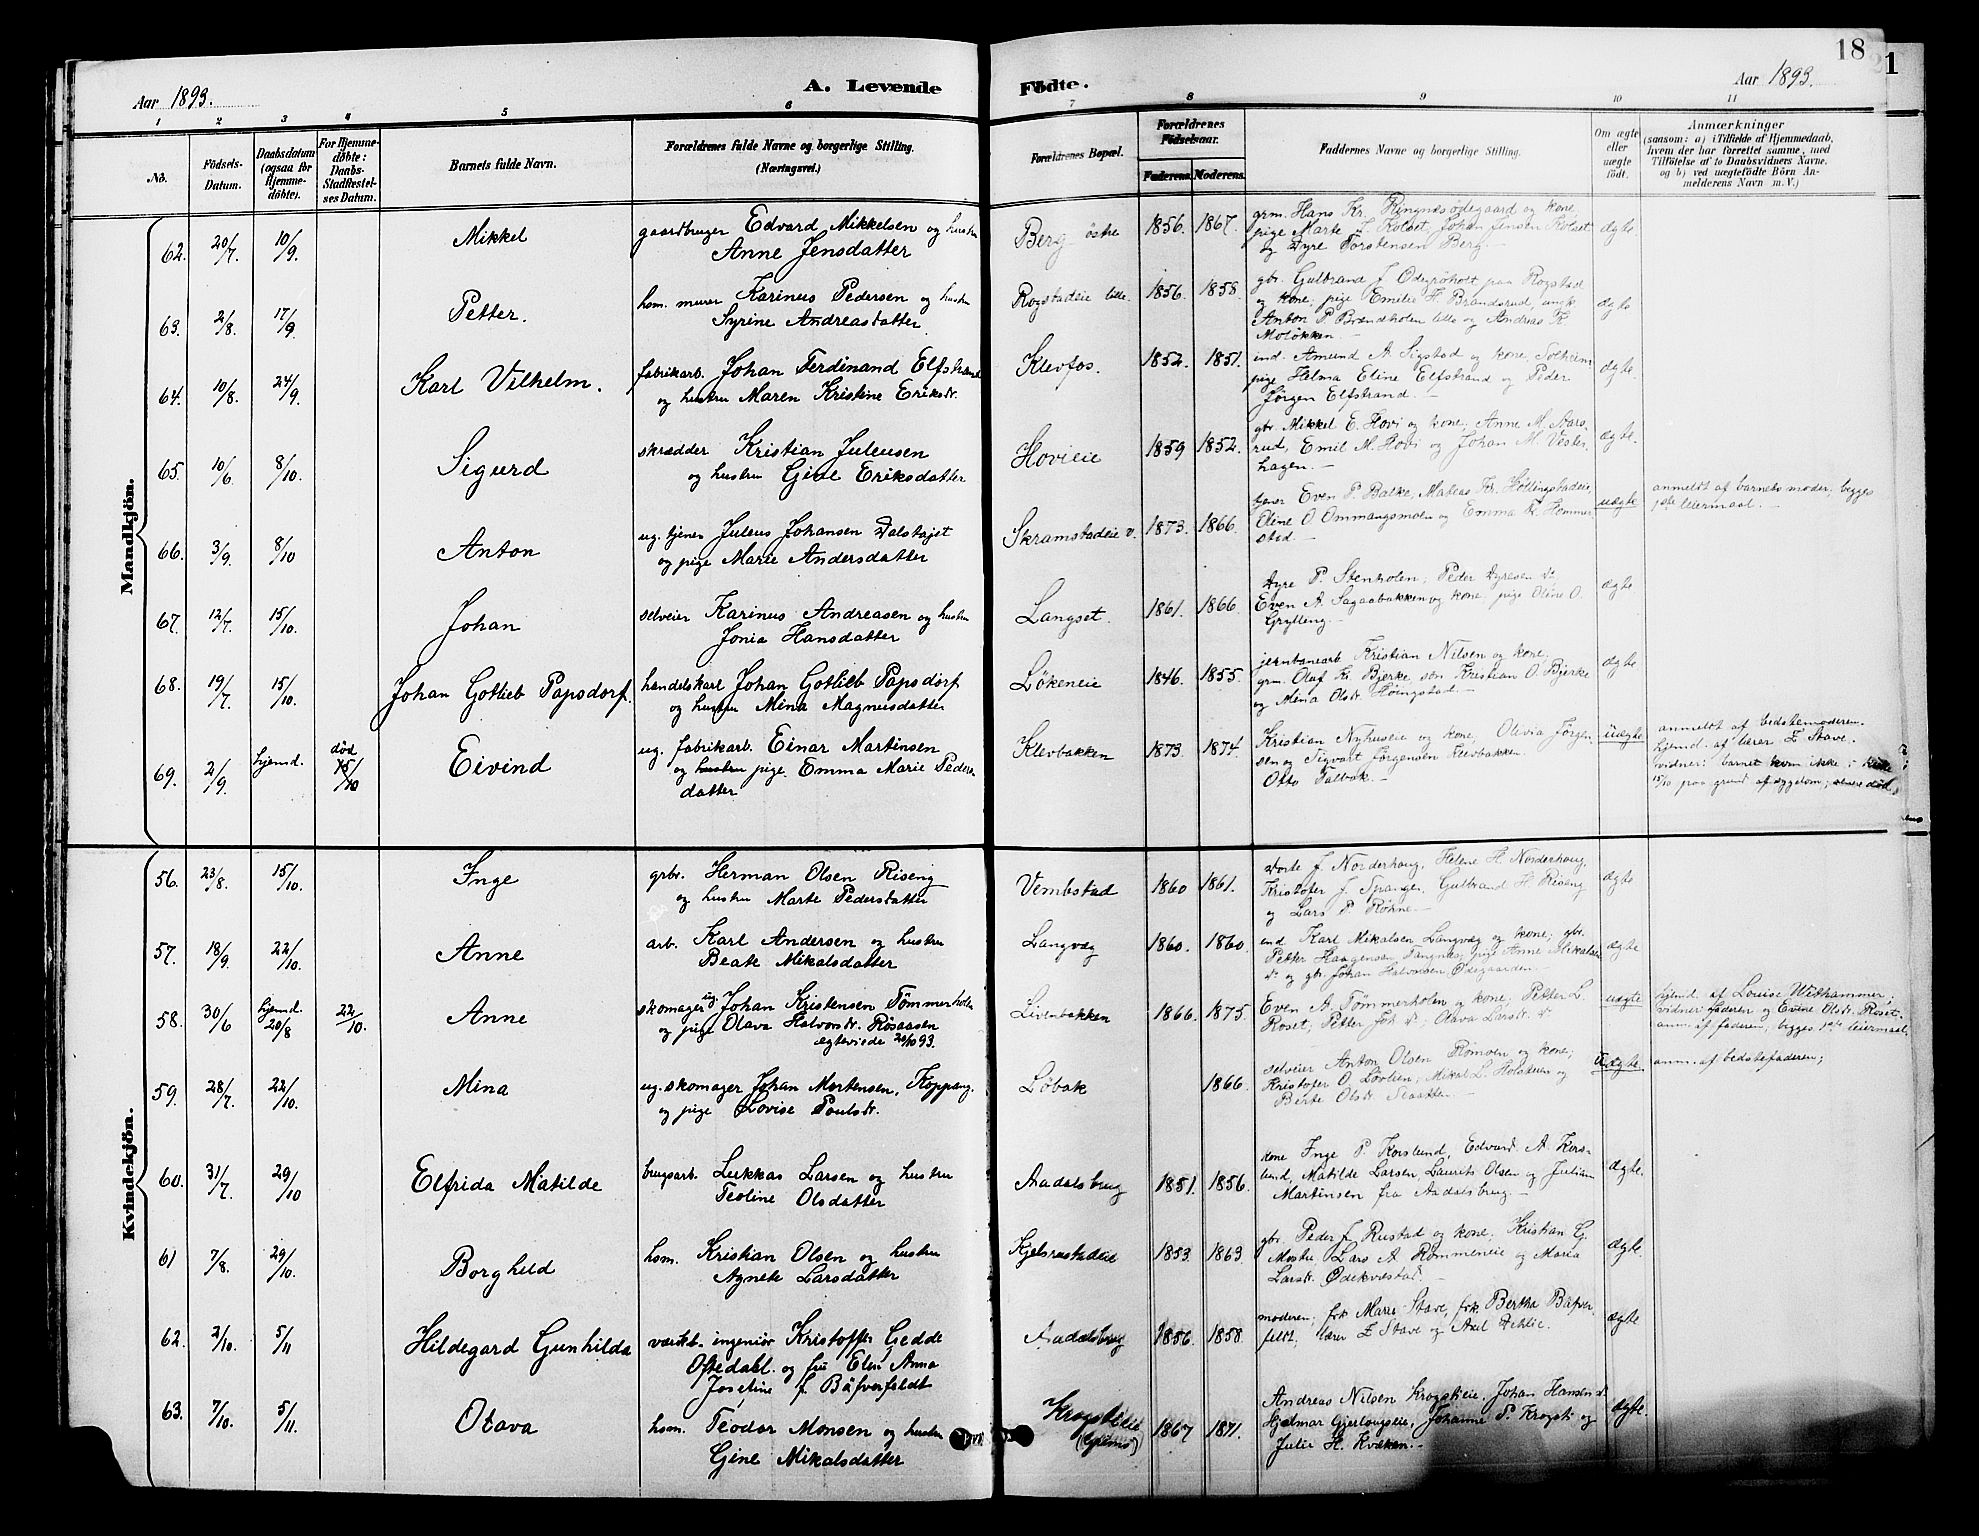 18
1
Aar 1893.
A. Levende Fødte.
Aar 1893.
1 2 3 4 5 6 7 8 9 10 11
No.
Fødsels-Datum.
Daabsdatum (ogsaa for Hjemmedøbte).
For Hjemmedøbte: Daabs-Stadfæstelses Datum.
Barnets fulde Navn.
Forældrenes fulde Navne og borgerlige Stilling. (Næringsvei.)
Forældrenes Bopæl.
Forældrenes Fødselsaar.
Faderens. Moderens.
Faddernes Navne og borgerlige Stilling.
Om ægte eller uægte født.
Anmærkninger
(saasom: a) i Tilfælde af Hjemmedaab,
hvem der har forrettet samme, med
Tilføielse af to Daabsvidners Navne.
og b) ved uægtefødte Børn Anmelderens Navn m. V.)
Mandkjøn.
62. 20/7. 10/9. Mikkel gaardbruger Edvard Mikkelsen og hustru
Anne Jensdatter
Berg østre 1856. 1867. grm. Hans Kr. Ringnæsødegaard og kone,
pige Marte J. Kolset, Johan Jensen Kolset
og Dyre Torstensen Berg. ægte
63. 2/8. 17/9. Petter. hom. murer Karinus Pedersen og hustru
Syrine Andreasdatter.
Rogstadeie lille. 1856. 1858. gbr. Gulbrand J. Odersholt paa Rogstad
og kone, pige Emilie H. Brandsrud, ungk.
Anton P. Brændholen lille og Andreas K.
Moløkken. ægte
64. 10/8. 24/9. Karl Vilhelm. fabrikarb. Johan Ferdinand Elfstrand
og hustru Maren Kristine Eriksdr.
Klevfos. 1852. 1851. ind. Amund A. Sigstad og kone, Solheim,
pige Helma Eline Elfstrand og Peder
Jörgen Elfstrand. ægte.
65. 10/6. 8/10. Sigurd skrædder Kristian Juleusen
og hustru Gine Eriksdatter
Hovieie 1859 1852. gbr. Mikkel E. Hovi og kone, Anne M. Aarsrud,
Emil M. Hovi og Johan M. Vesterhagen. ægte.
66. 3/9. 8/10 Anton ug. tjener Juleus Johansen Dalshøjet
og pige Marie Andersdatter
Skramstadeie v. 1873. 1866. tjener Even P. Balke, Mateas Kr. Høllingstadeie,
Eline O. Ommangsmoen og Emma K. Hommerstad. uægte
anmeldt af barnets moder, begges
1ste leiermaal.
67. 12/7. 15/10. Johan selveier Karinus Andreasen og hustru
Jonia Hansdatter
Langset. 1861. 1866. Dyre P. Stenholen, Peder Dyresen do.
Even A. Sagaabakken og kone, pige Oline O.
Grylleng. ægte
68. 19/7. 15/10. Johan Gotlieb Papsdorf. handelskarl Johan Gotlieb Papsdorf
og hustru Mina Magnusdatter
Løkeneie 1846. 1855. jernbanearb Kristian Nilsen og kone,
grm. Olaf K. Bjerke, søn Kristian O. Bjerke
og Mina Olsdr. Høingstad. ægte
69. 2/9. hjemd. død 15/10 Eivind ug. fabrikarb. Einar Martinsen
og hustru pige. Emma Marie Pedersdatter
Klevbakken 1873. 1874. Kristian Nyhuseie og kone, Olivia Jørgensen
og Sigvart Jørgensen Klevbakken.
Otto Talbak. uægte
anmeldt af bedstemoderen.
hjemd. af lærer E Stave.
vidner: barnet kom ikke i kirke
15/10 paa grund af sygdom; død.
Kvindekjøn.
56. 23/8. 15/10. Inge grbr. Herman Olsen Riseng
og hustru Marte Pedersdatter
Vembstad 1860 1861. Dorte J. Norderhaug, Helene H. Norderhaug,
Kristofer J. Spangen, Gulbrand H. Riseng
og Lars P. Røhne. ægte
57. 18/9. 22/10. Anne arb. Karl Andersen og hustru
Beate Mikalsdatter
Langvæg 1860. 1860. ind Karl Mikalsen Langvæg og kone, gbr.
Petter Haagensen Langnes, pige Anne Mikalsen
do. og gbr. Johan Halvorsen Ødegaarden. ægte
58. 30/6 hjemd. 20/8 22/10. Anne skomager ug. Johan Kristensen Tømmerholen
og pige Olava Halvorsdr. Røsaasen
ægteviede 20/10 93.
Livenbakken 1866. 1875. Even A. Tømmerholen og kone; Petter L.
Roset, Petter Joh. do.; Olava Larsdr. do uægte
hjemd. af Louise Withammer;
vidner: faderen og Evine Olsdr. Roset.
anm. af faderen, begges 1ste leiermaal.
59. 28/7. 22/10. Mina ug. skomager Johan Mortensen, Koppang.
og pige Lovise Poulsdr.
Løbak 1866. selveier Anton Olsen Rømoen og kone;
Kristofer O. Løvlien; Mikal L. Holsteen og
Berte Olsdr. Slaatten. uægte. anm. af bedstefaderen;
60. 31/7. 29/10 Elfrida Matilde brugsarb. Lukkas Larsen og hustru
Teoline Olsdatter
Aadalsbrug 1851. 1856. kone Inge P. Korslund, Edvard A. Korslund,
Matilde Larsen, Laurits Olsen og Julian
Martinsen fra Aadalsbrug. ægte.
61 7/8. 29/10. Borghild hom. Kristian Olsen og hustru
Agnete Larsdatter
Kjelsrustadeie 1853. 1863 gbr. Peder J. Rustad og kone, Kristian G.
Mostue, Lars A. Rommeneie og Maria
Larsdr. Ødekvestad. ægte.
62. 2/10. 5/11 Hildegard Gunhilda værkst. ingeniør Kristoffer Gedde
Oftedahl og fru Elen Anna
Josefine f. Bäfverfeldt
Aadalsbrug 1856. 1858. moderen; frk Marie Stave, frk. Bertha Bäfverfeldt;
lærer E Stave og Axel Dehlie. ægte
63. 7/10. 5/11. Otava hom. Teodor Monsen og hustru
Gine Mikalsdatter
Krogstieie 1867 1871. Andreas Nilsen Krogstieie, Johan Hansen do.
Hjalmar Gjerlaugseie, Johanne P. Krogsti og
Julie H. Kvæken. ægte.